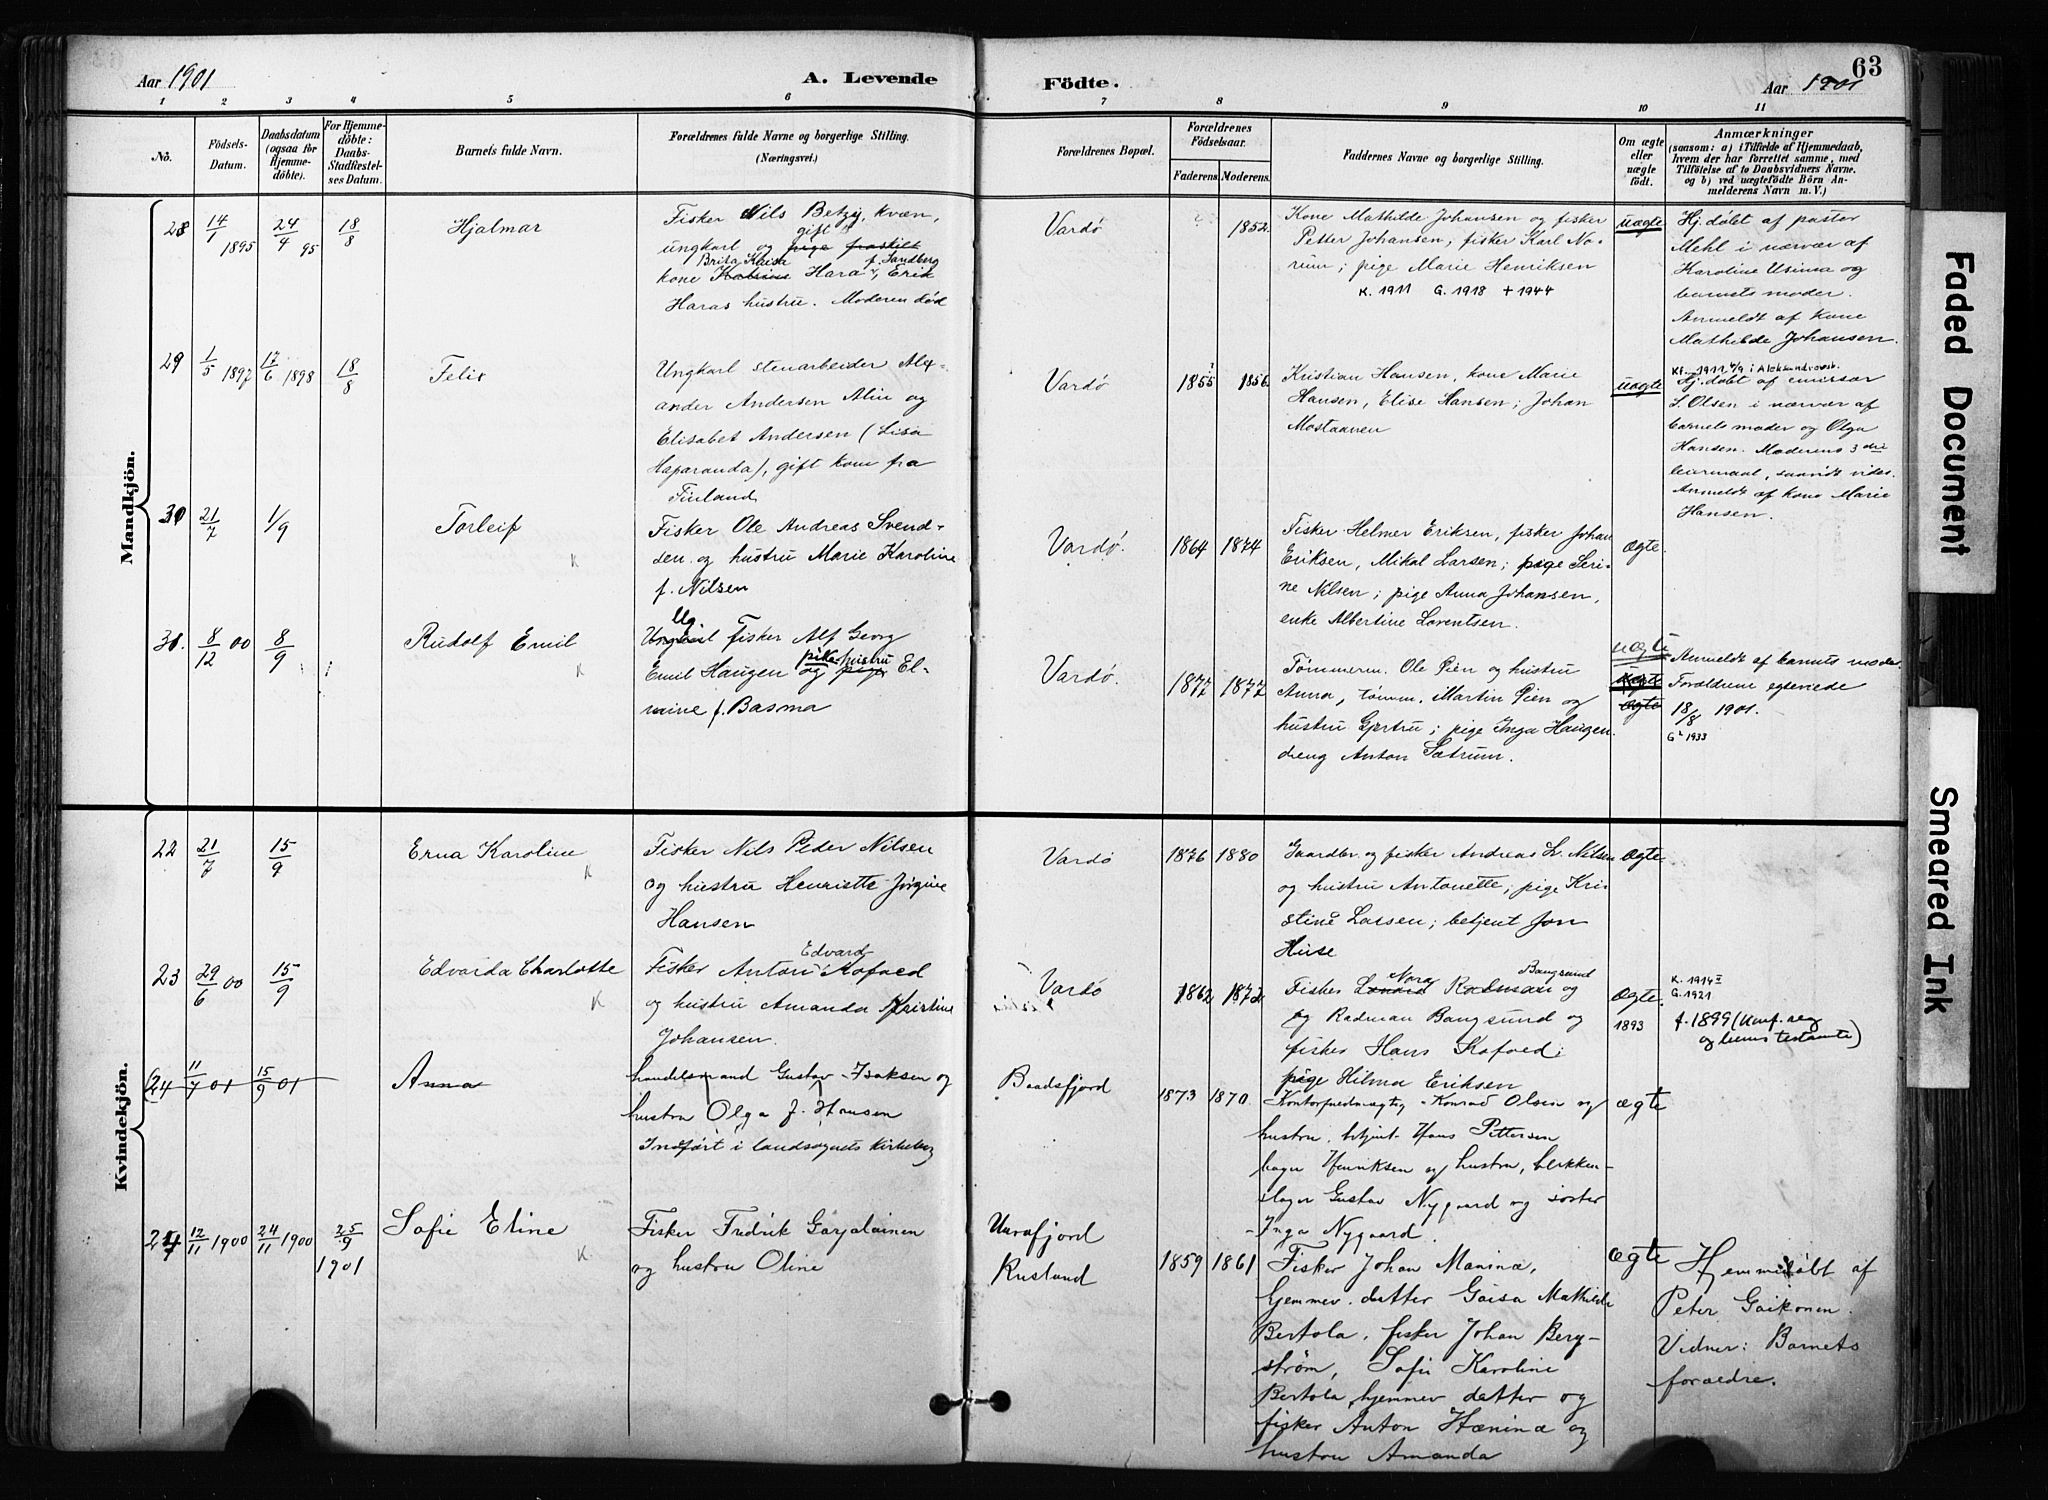 Aar 1901
A. Levende
Födte.
Aar 1901
63
1 2 3 4 5 6 7 8 9 10 11
No.
Födsels-
Datum.
Daabsdatum
(ogsaa for
Hjemme-
döbte).
For Hjemme-
döbte:
Daabs-
Stadfæstel-
ses Datum.
Barnets fulde Navn.
Forældrenes fulde Navne og borgerlige Stilling.
(Næringsvei.)
Forældrenes Bopæl.
Forældrenes
Födselsaar.
Faderens. Moderens.
Faddernes Navne og borgerlige Stilling.
Om ægte
eller
uægte
födt.
Anmærkninger
(saasom: a) i Tilfælde af Hjemmedaab,
hvem der har forrettet samme, med
Tilföielse af to Daabsvidners Navne.
og b) ved uægtefödte Börn An-
melderens Navn m. V.)
Mandkjön.
28
14/1 1895
24/4 95
18/8
Hjalmar
Fisker Nils Betzy, kvæn,
gift
ungkarl og pige fraskilt
Brita Kaisa f. Sandberg
kone Hara, Erik
Haras hustru. Moderen død
Vardø
1852
Kone Mathilde Johansen og fisker
Petter Johansen; fisker Karl No-
rum; pige Marie Henriksen
K. 1911 G. 1918 + 1944
uægte
Hj. døbt af pastor
Mehl i nærvær af
Karoline Usima og
barnets moder.
Anmeldt af kone
Mathilde Johansen.
29
1/5 1897
17/6 1898
18/8
Felix
Ungkarl stenarbeider Alex-
ander Andersen Alin og
Elisabet Andersen (Lisa
Haparanda), gift kone fra
Finland
Vardø
1855
1856
Kristian Hansen, kone Marie
Hansen, Elise Hansen; Johan
Mostaanen
uægte
Kf. 1911 i Aleksandrovsk.
Hj. døbt af emissær
L. Olsen i nærvær af
barnets moder og Olga
Hansen. Moderens 3 die
leiermaal, saavidt vides.
Anmeldt af kone Marie
Hansen.
30
21/7
1/9
Torleif
K
Fisker Ole Andreas Svend-
sen og hustru Marie Karoline
f. Nilsen
Vardø.
1864 1874
Fisker Helmer Eriksen, fisker Johan
Eriksen, Mikal Larsen; pige Seri-
ne Nilsen; pige Anna Johansen,
enke Albertine Lorentsen.
Ægte.
31.
8/12 00
8/9
Rudolf Emil
Ug.
Ungkarl Fisker Alf Georg
pike hustru
Emil Haugen og pige El-
mine f. Basma
Vardø.
1877 1877
Tømmerm. Ole Pien og hustru
Anna, tømm. Martin Pien og
hustru Gjertru; pige Inga Haugen
dreng Anton Sætrum.
uægte
uægte
Ægte
Anmeldt af barnets moder.
Forældrene egteviede
18/8 1901.
G² 1933
Kvindekjön.
22
21/7
15/9
Erna Karoline
K
Fisker Nils Peder Nilsen
og hustru Henriette Jørgine
Hansen
Vardø
1876 1880
Gaardbr. og fisker Andreas L. Nilsen
og hustru Antonette, pige Kri-
stine Larsen; betjent Jon
Huse
Ægte
23
29/6 00
15/9
Edvarda Charlotte
K
Edvard
Fisker Anton Kofoed
og hustru Amanda Kristine
Johansen.
Vardø
1862 1872
Nora Bangsund
Fisker Radman og
og Radman Bangsund og
fisker Hans Kofoed;
pige Hilma Eriksen
Ægte.
1893
K. 1914 II
G. 1921
f. 1899 (Konf. reg
og hennes testamte)
24
11/7 01
15/9 01
Anna
handelsmand Gustav Isaksen og
hustru Olga f. Hansen
Indført i landsognets kirkebog
Baadsfjord
1873 1870
Kontorfuldmægtig Konrad Olsen og
hustru, betjent Hans Pettersen
bager Henriksen og hustru, blikken-
slager Gustav Nygaard og søster
Inga Nygaard.
ægte
24
12/11 1900
24/11 1900
25/9
1901
Sofie Eline
K
Fisker Fredrik Garjalainen
og hustru Oline
Uurafjord
Rusland
1859 1861
Fisker Johan Manina,
hjemmev. datter Gaisa Mathilda
Bertola, fisker Johan Berg-
strøm, Sofie Karoline
Bertola, hjemmev datter og
fisker Anton Hænina og
hustru Amanda
ægte
Hjemmedøbt af
Peter Gaikonen.
Vidner: Barnets
forældre.
Faded Document
Smeared Ink